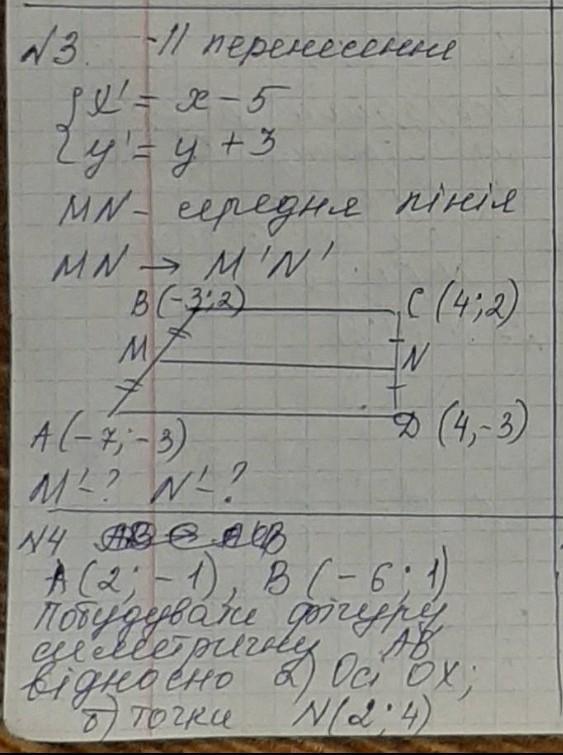 N3. -|| перенесення
{ x' = x - 5
{ y' = y + 3
MN - середня лінія
MN → M'N'
B(-3; 2) C(4; 2)
M N
A(-7; -3) D(4, -3)
M' - ? N' - ?
N4
A(2; -1), B(-6; 1)
Побудувати фігуру,
симетричну AB
відносно а) Осі OX;
б) точки N(2; 4)